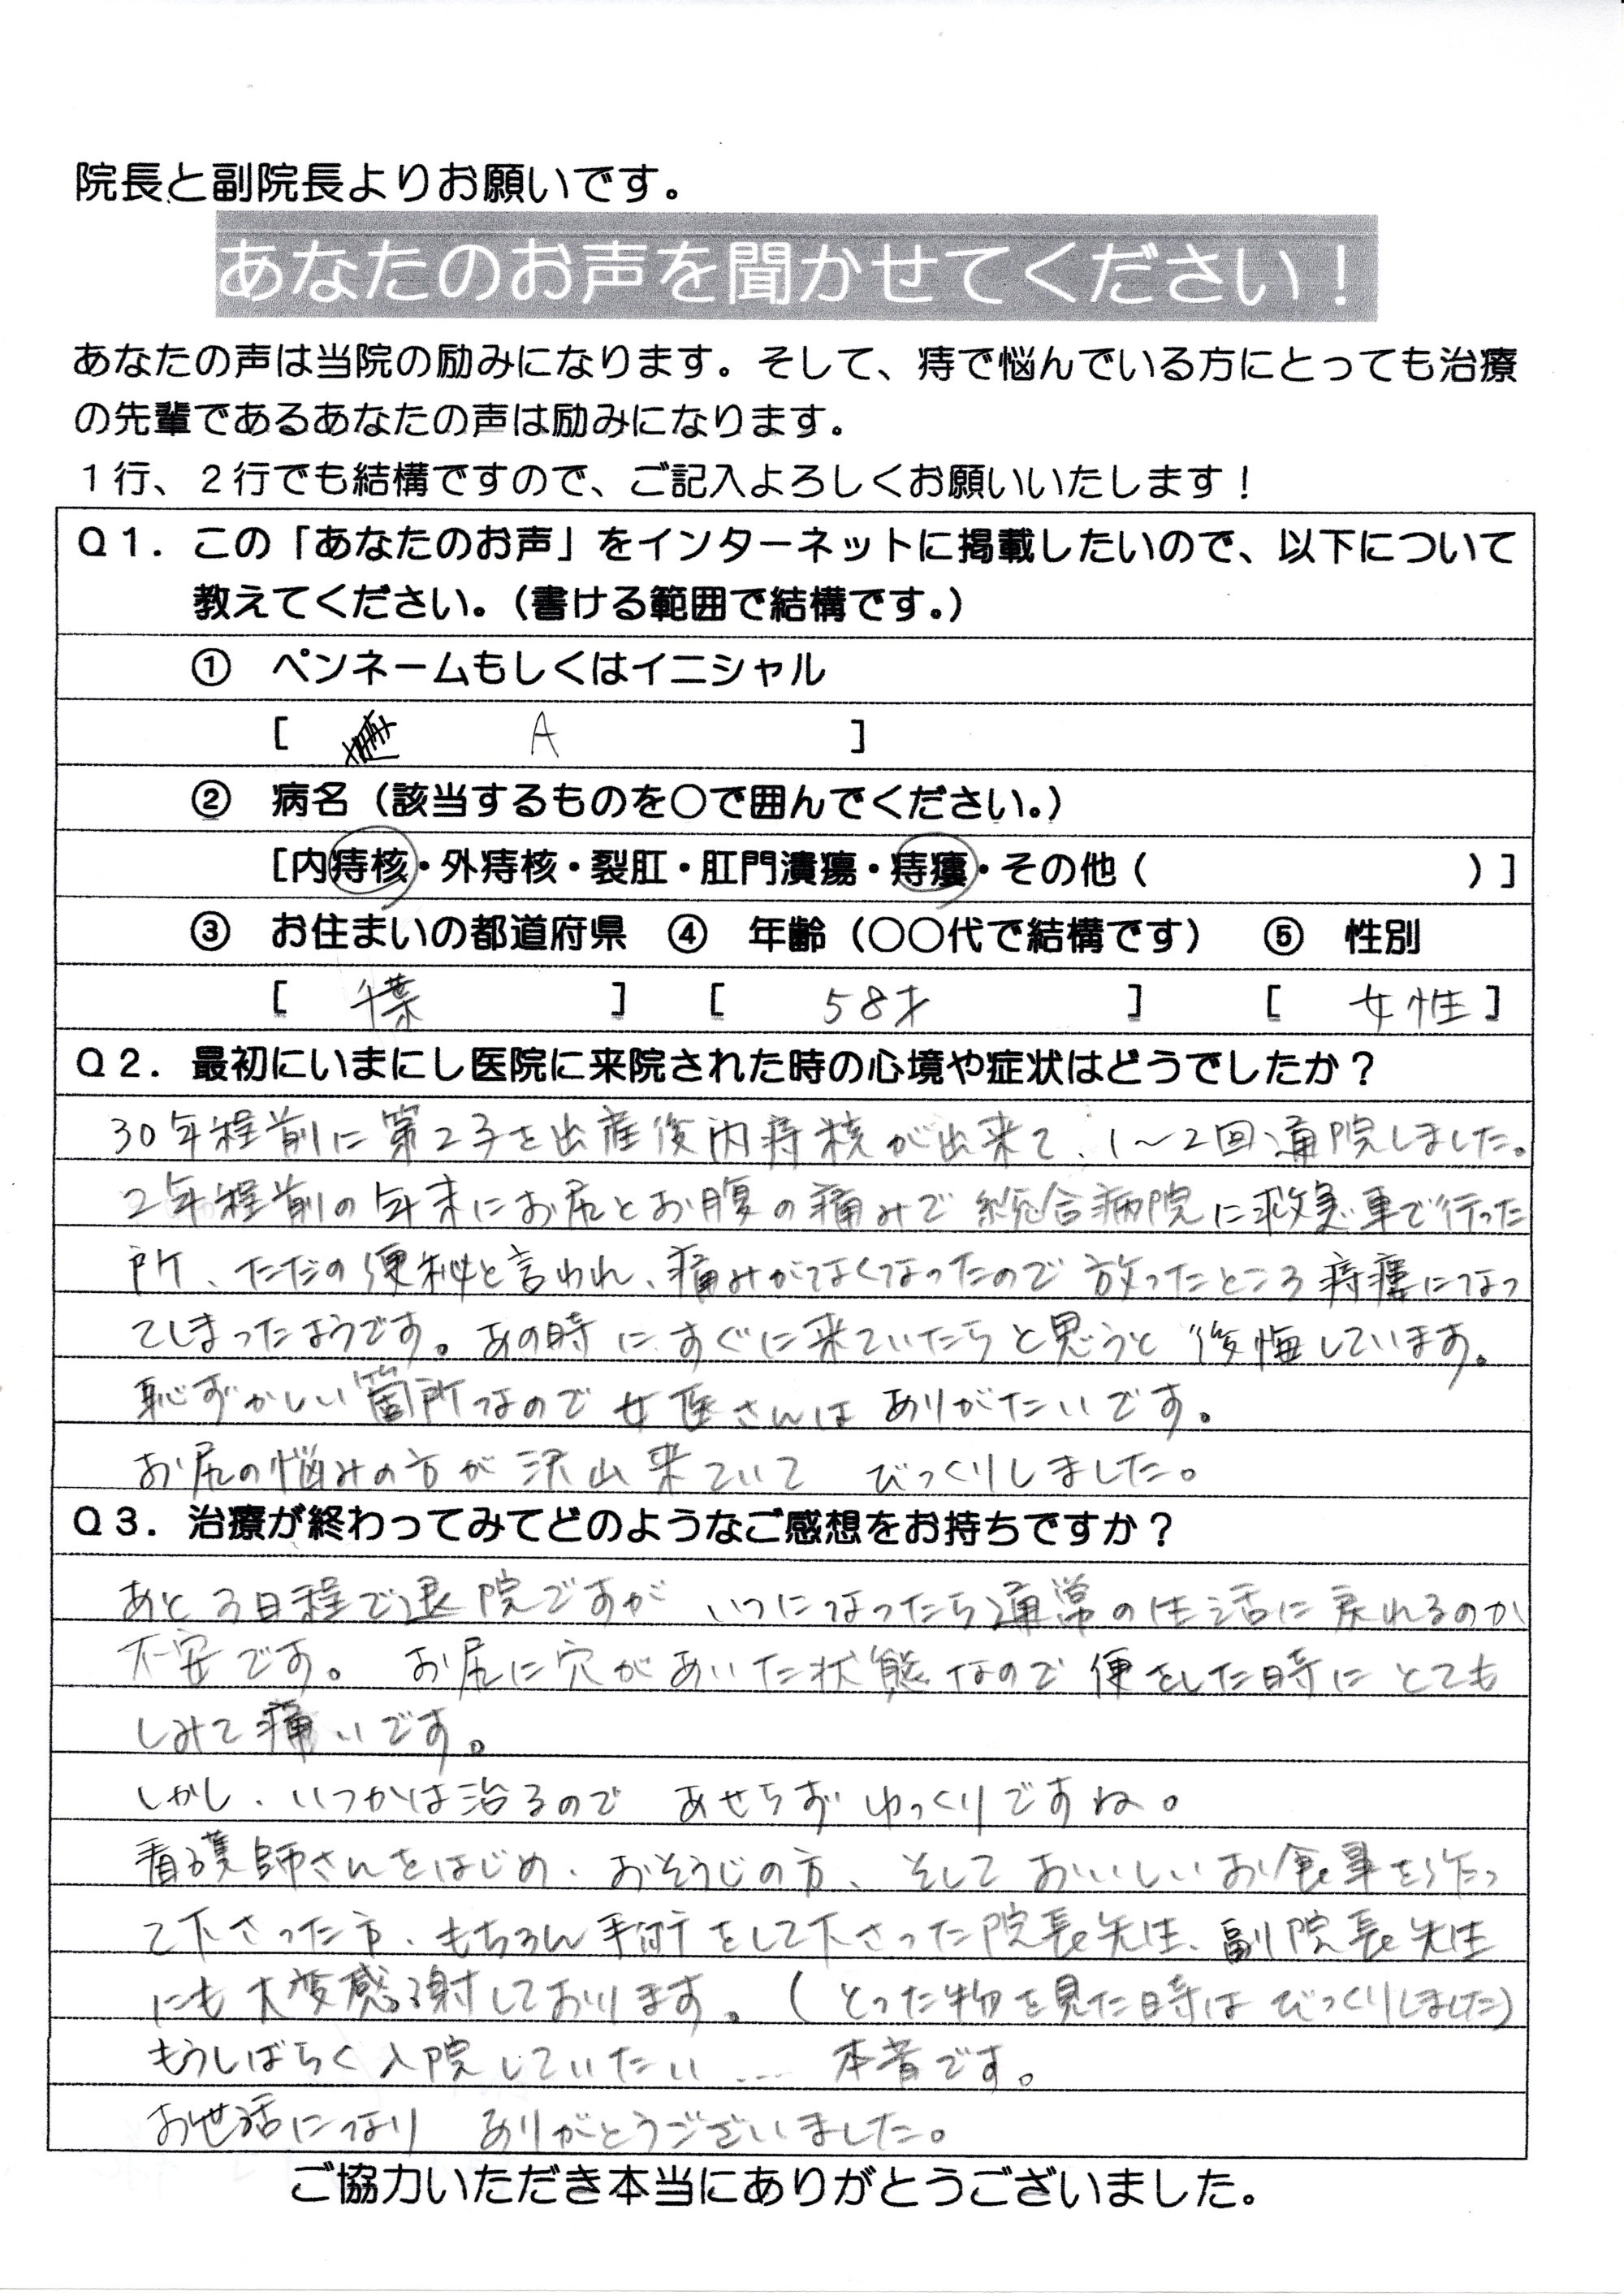 院長と副院長よりお願いです。
あなたのお声を聞かせてください！
あなたの声は当院の励みになります。そして、痔で悩んでいる方にとっても治療
の先輩であるあなたの声は励みになります。
１行、２行でも結構ですので、ご記入よろしくお願いいたします！
Ｑ１．この「あなたのお声」をインターネットに掲載したいので、以下について
教えてください。（書ける範囲で結構です。）
① ペンネームもしくはイニシャル
[ A ]
② 病名（該当するものを○で囲んでください。）
[内痔核・外痔核・裂肛・肛門潰瘍・痔瘻・その他（ ）]
③ お住まいの都道府県 ④ 年齢（○○代で結構です） ⑤ 性別
[ 千葉 ] [ 58才 ] [ 女性 ]
Ｑ２．最初にいまにし医院に来院された時の心境や症状はどうでしたか？
30年程前に第2子を出産後内痔核が出来て、1～2回通院しました。
2年程前の年末にお尻とお腹の痛みで総合病院に救急車で行った
所、ただの便秘と言われ、痛みがなくなったので放ったところ痔瘻になっ
てしまったようです。あの時にすぐに来ていたらと思うと後悔しています。
恥ずかしい箇所なので女医さんはありがたいです。
お尻の悩みの方が沢山来ていて びっくりしました。
Ｑ３．治療が終わってみてどのようなご感想をお持ちですか？
あと3日程で退院ですが いつになったら通常の生活に戻れるのか
不安です。 お尻に穴があいた状態なので便をした時にとても
しみて痛いです。
しかし、いつかは治るので あせらずゆっくりですね。
看護師さんをはじめ、おそうじの方、そしておいしいお食事を作っ
て下さった方、もちろん手術をして下さった院長先生、副院長先生
にも大変感謝しております。（とった物を見た時はびっくりしました）
もうしばらく入院していたい…… 本音です。
お世話になり ありがとうございました。
ご協力いただき本当にありがとうございました。